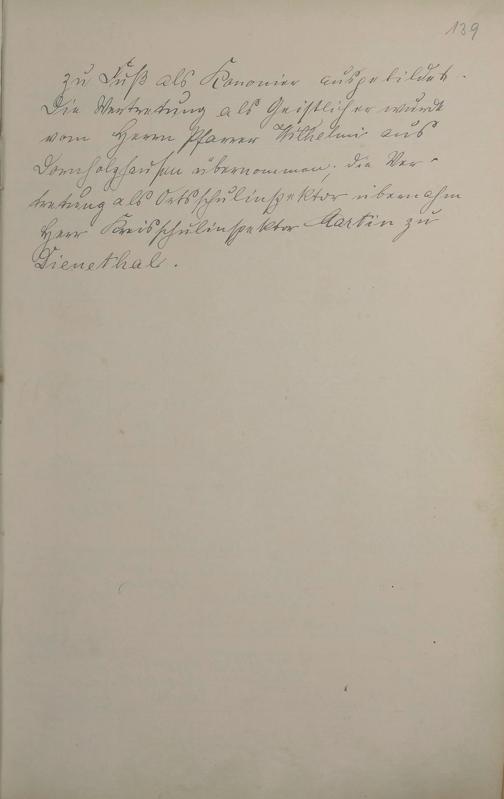 139
zu Fuß als Kanonier ausgebildet.
Die Vertretung als Geistlicher wurde
vom Herrn Pfarrer Wilhelmi aus
Dornholzhausen übernommen, die Ver-
tretung als Ortsschulinspektor übernahm
Herr Kreisschulinspektor Martin zu
Dienethal.